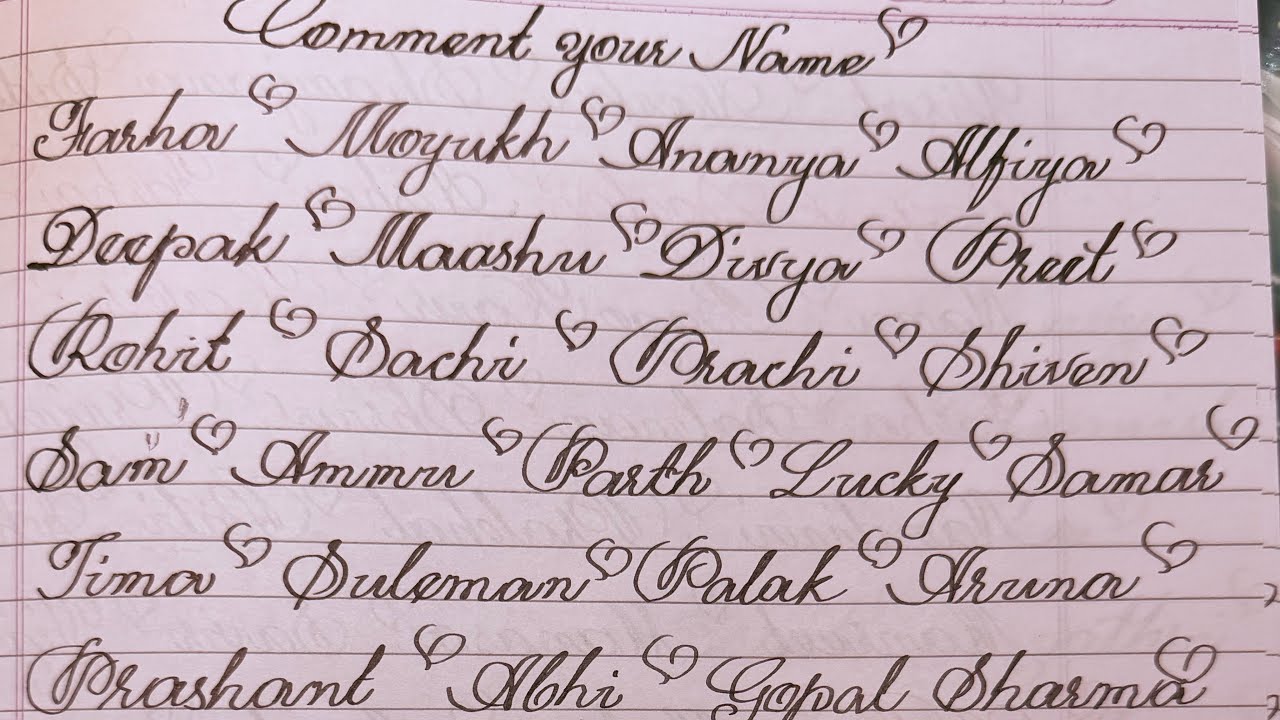 Comment your Name
Farha Moyukh Ananya Alfiya
Deepak Maashu Divya Preet
Rohit Sachi Prachi Shiven
Sam Ammu Parth Lucky Samar
Tima Suleman Palak Aruna
Prashant Abhi Gopal Sharma